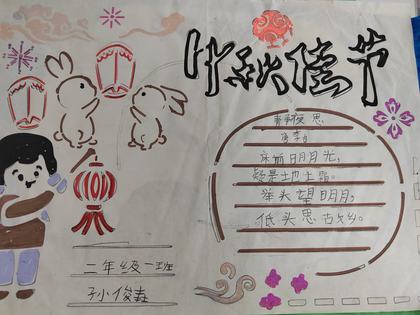 中秋佳节
静夜思
唐李白
床前明月光，
疑是地上霜。
举头望明月，
低头思古乡。
二年级一班
孙俊